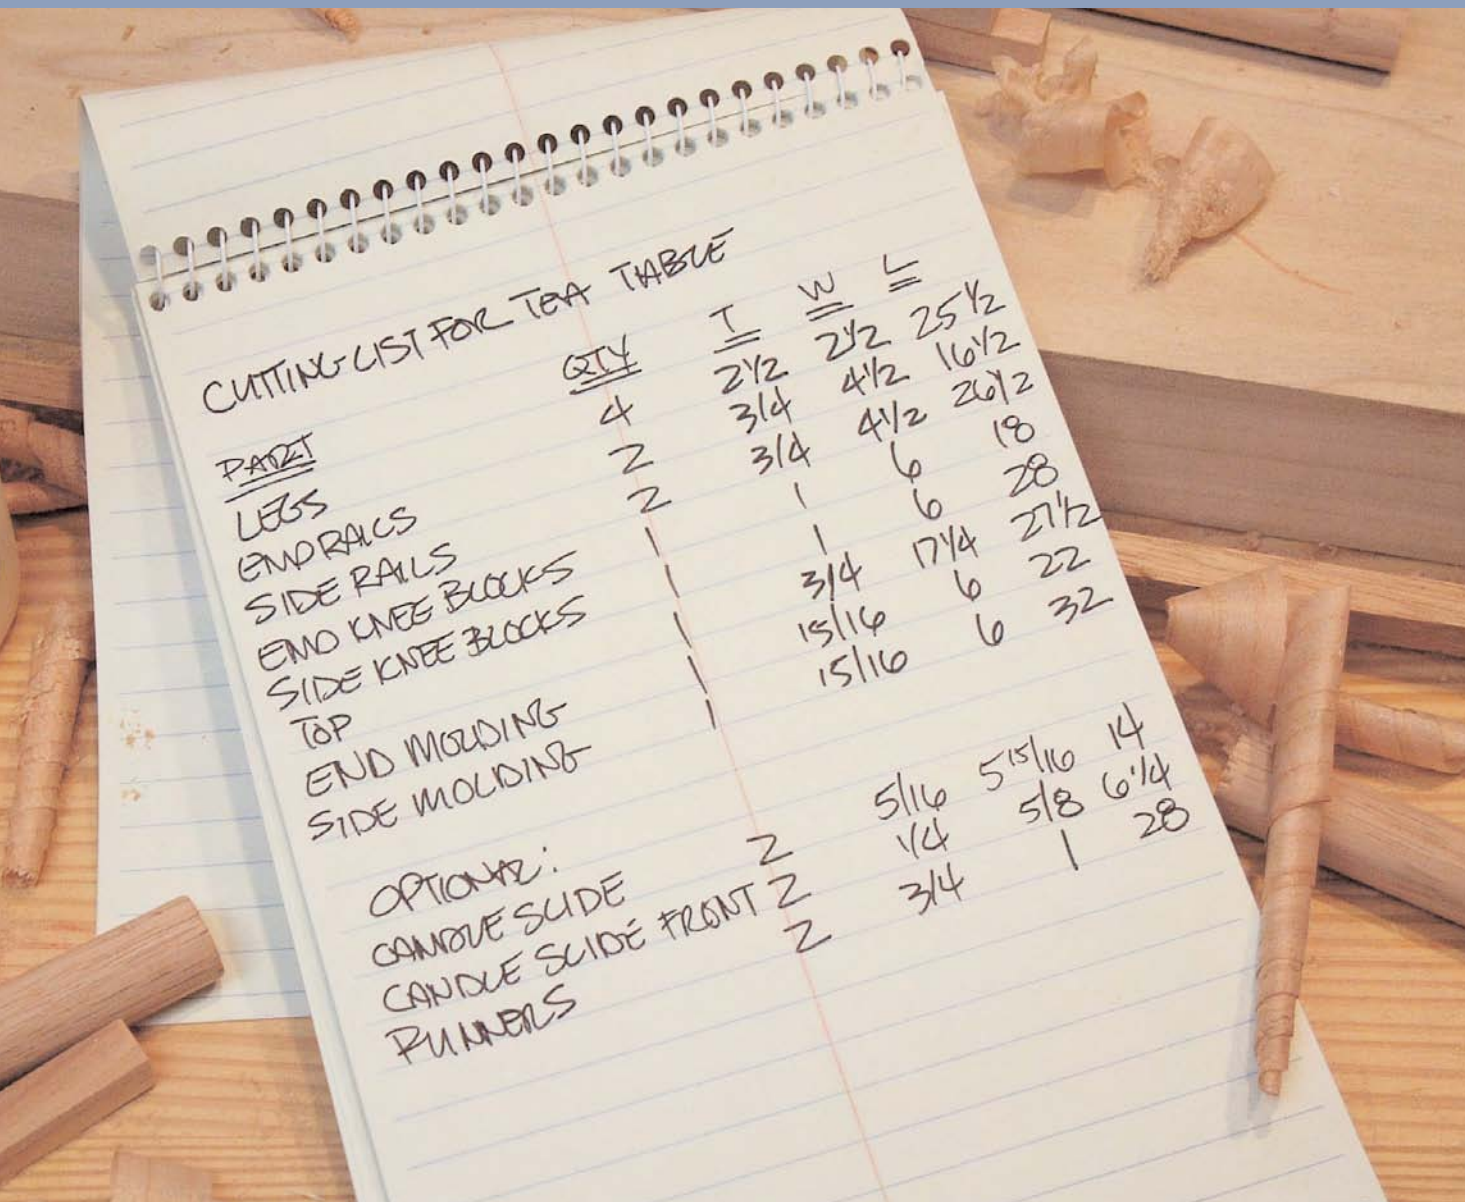 CUTTING LIST FOR TEA TABLE
PART QTY T W L
LEGS 4 2 1/2 2 1/2 25 1/2
END RAILS 2 3/4 4 1/2 16 1/2
SIDE RAILS 2 3/4 4 1/2 26 1/2
END KNEE BLOCKS 1 1 6 18
SIDE KNEE BLOCKS 1 1 6 28
TOP 1 3/4 17 1/4 27 1/2
END MOLDING 1 15/16 6 22
SIDE MOLDING 1 15/16 6 32
OPTIONAL:
CANDLE SLIDE 2 5/16 5 15/16 14
CANDLE SLIDE FRONT 2 1/4 5/8 6 1/4
RUNNERS 2 3/4 1 28